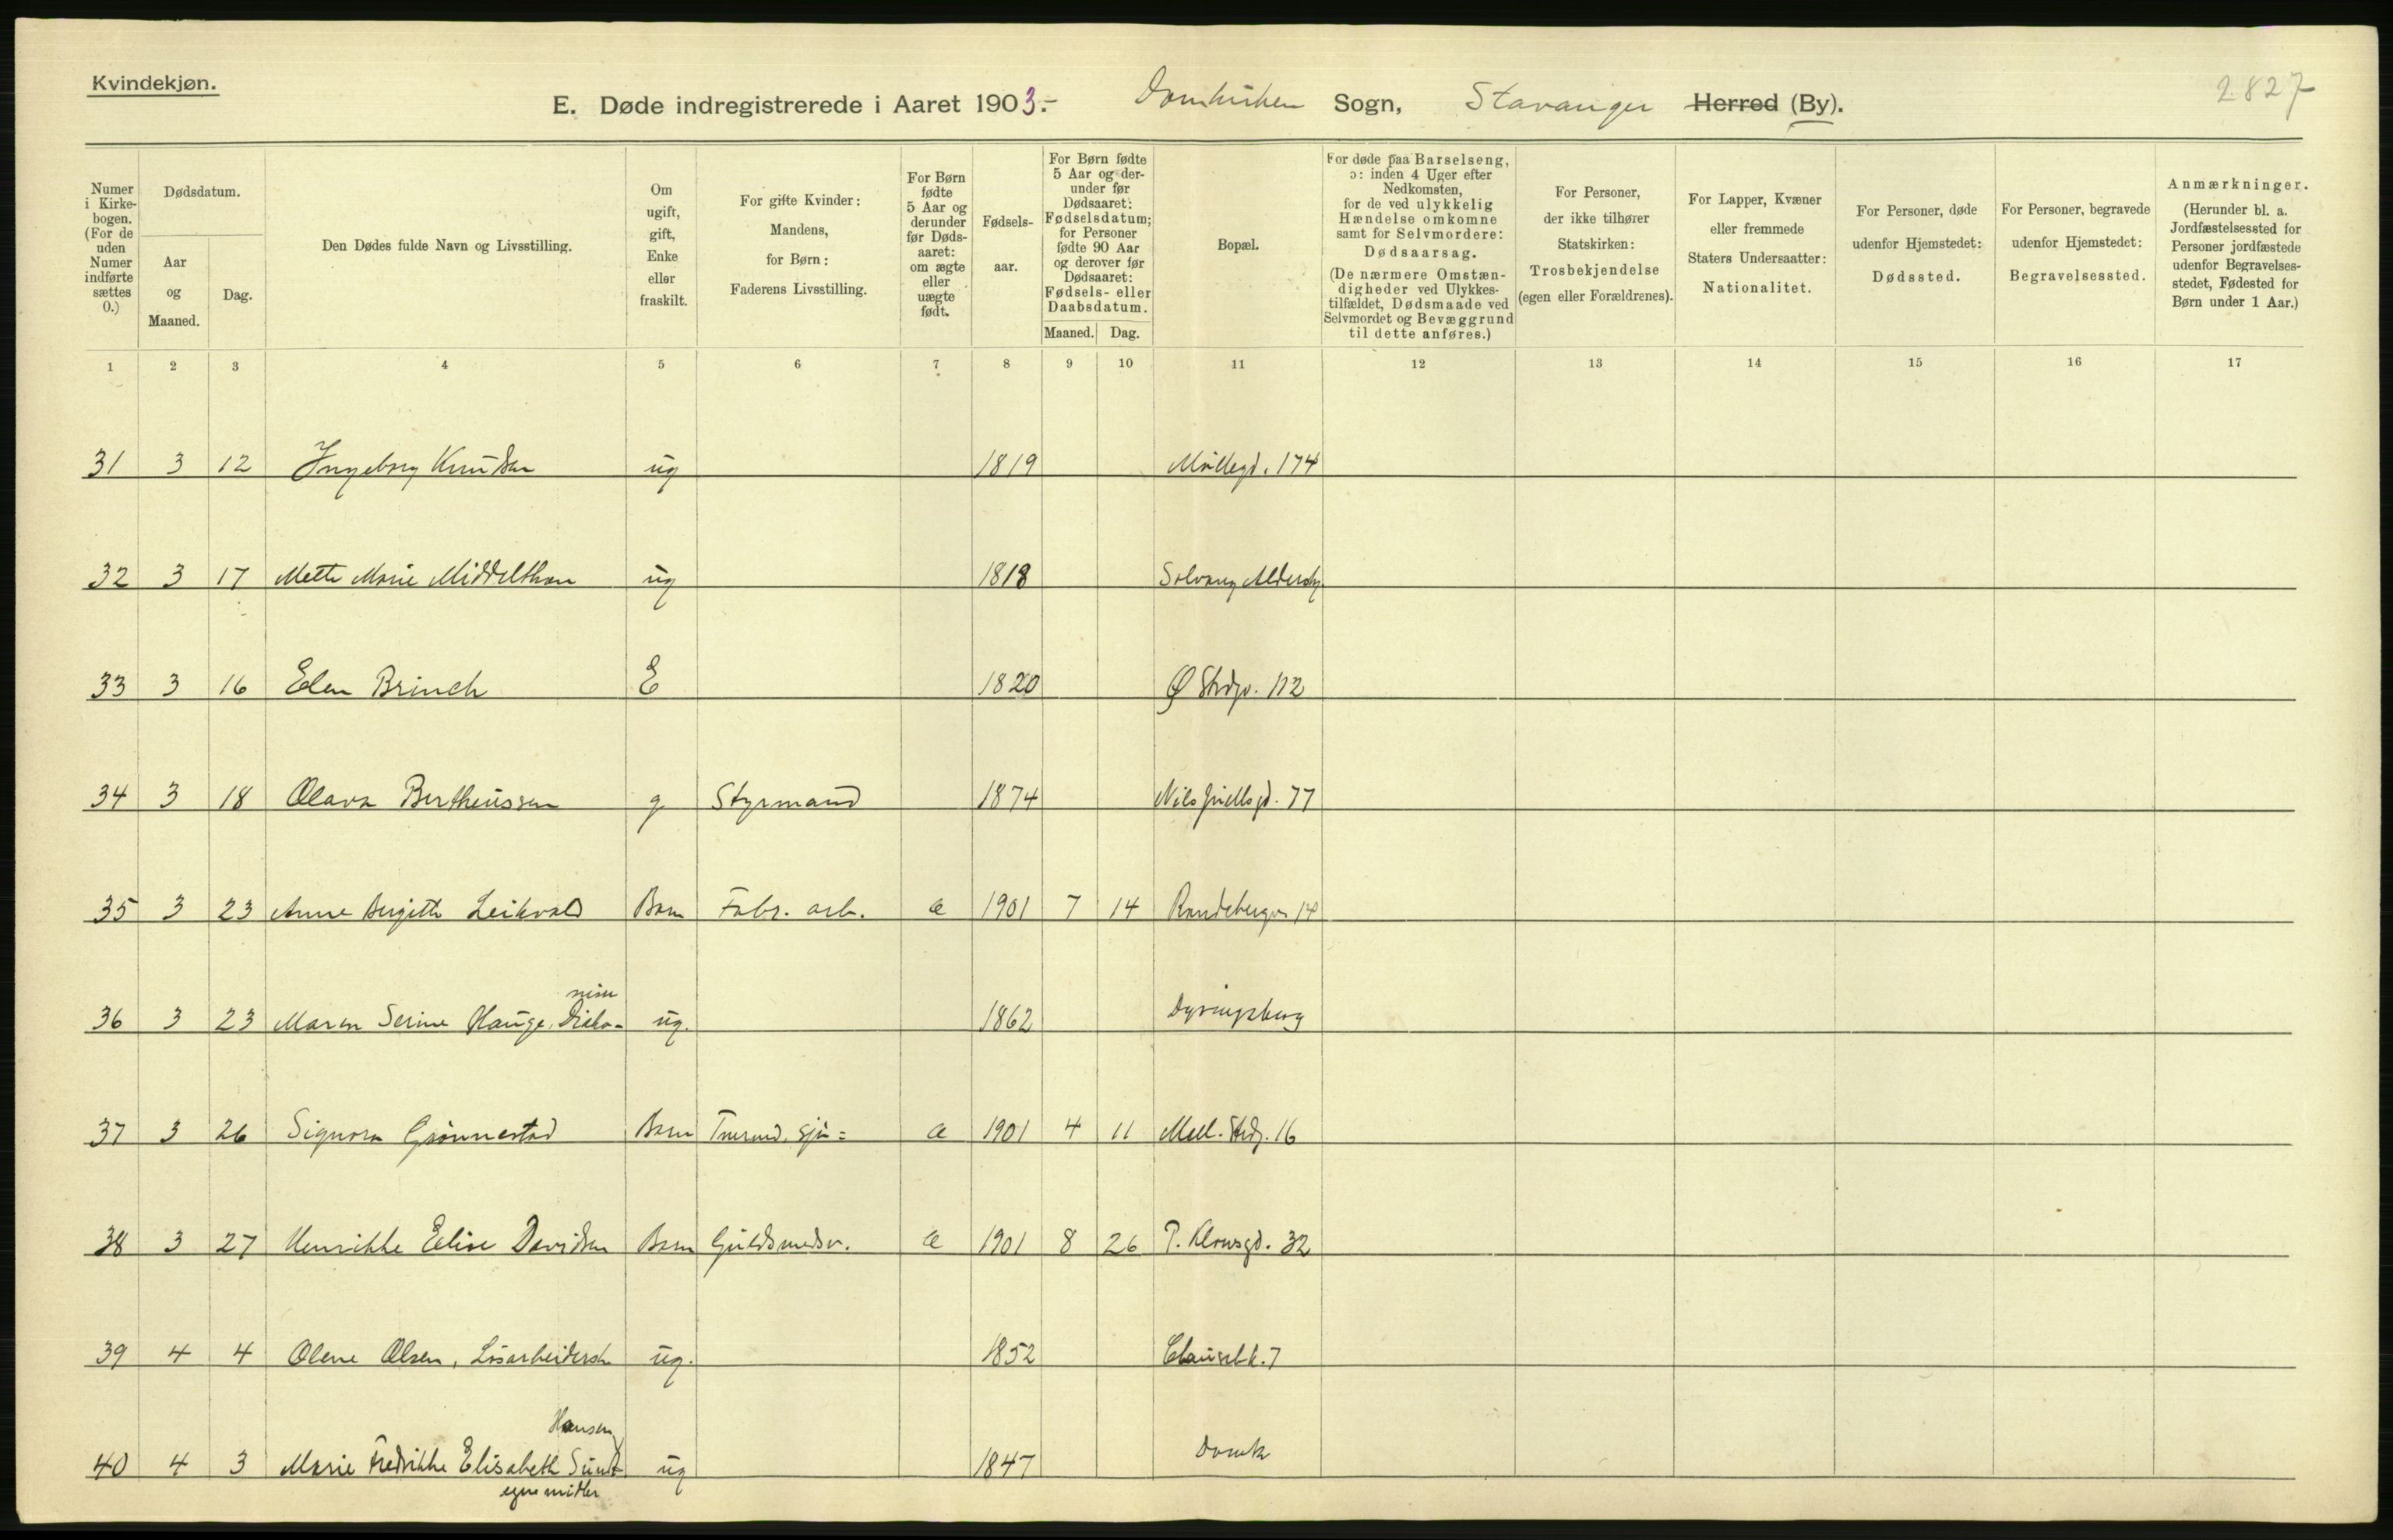 Kvindekjøn.
2827
E. Døde indregistrerede i Aaret 1903.- Domkirken Sogn, Stavanger Herred (By).
Numer i Kirkebogen. (For de uden Numer indførte sættes 0.)
Dødsdatum.
Aar og Maaned.
Dag.
Den Dødes fulde Navn og Livsstilling.
Om ugift, gift, Enke eller fraskilt.
For gifte Kvinder: Mandens, for Børn: Faderens Livsstilling.
For Børn fødte 5 Aar og derunder før Dødsaaret: om ægte eller uægte født.
Fødselsaar.
For Børn fødte 5 Aar og derunder før Dødsaaret: Fødselsdatum; for Personer fødte 90 Aar og derover før Dødsaaret: Fødsels- eller Daabsdatum.
Maaned. Dag.
Bopæl.
For døde paa Barselseng, ɔ: inden 4 Uger efter Nedkomsten, for de ved ulykkelig Hændelse omkomne samt for Selvmordere: Dødsaarsag. (De nærmere Omstændigheder ved Ulykkestilfældet, Dødsmaade ved Selvmordet og Bevæggrund til dette anføres.)
For Personer, der ikke tilhører Statskirken: Trosbekjendelse (egen eller Forældrenes).
For Lapper, Kvæner eller fremmede Staters Undersaatter: Nationalitet.
For Personer, døde udenfor Hjemstedet: Dødssted.
For Personer, begravede udenfor Hjemstedet: Begravelsessted.
Anmærkninger. (Herunder bl. a. Jordfæstelsessted for Personer jordfæstede udenfor Begravelsesstedet, Fødested for Børn under 1 Aar.)
1 2 3 4 5 6 7 8 9 10 11 12 13 14 15 16 17
31 3 12 Ingeborg Knudsen ug 1819 Møllegd. 174
32 3 17 Mette Marie Middelthon ug 1818 Solvang Aldersh.
33 3 16 Elen Brinch E 1820 Ø Strdgd. 112
34 3 18 Olava Bertheussen g Styrmand 1874 Nils Juellsgd. 77
35 3 23 Anne Bergitte Leikvold Barn Fabr. arb. æ 1901 7 14 Randebergv. 14
36 3 23 Maren Serine Hauge, ug. 1862
37 3 26 Signora Grønnestad Barn æ 1901 4 11 Mell. Strdg. 16
38 3 27 Henrikke Elise Davidsen Barn Guldsmedsv. æ 1901 8 26 P. Klowsgd. 32
39 4 4 Olene Olsen, Løsarbeidersk ug. 1852 7
Hansen
40 4 3 Marie Fredrikke Elisabeth Sundt ug 1847 Domk
egne midler